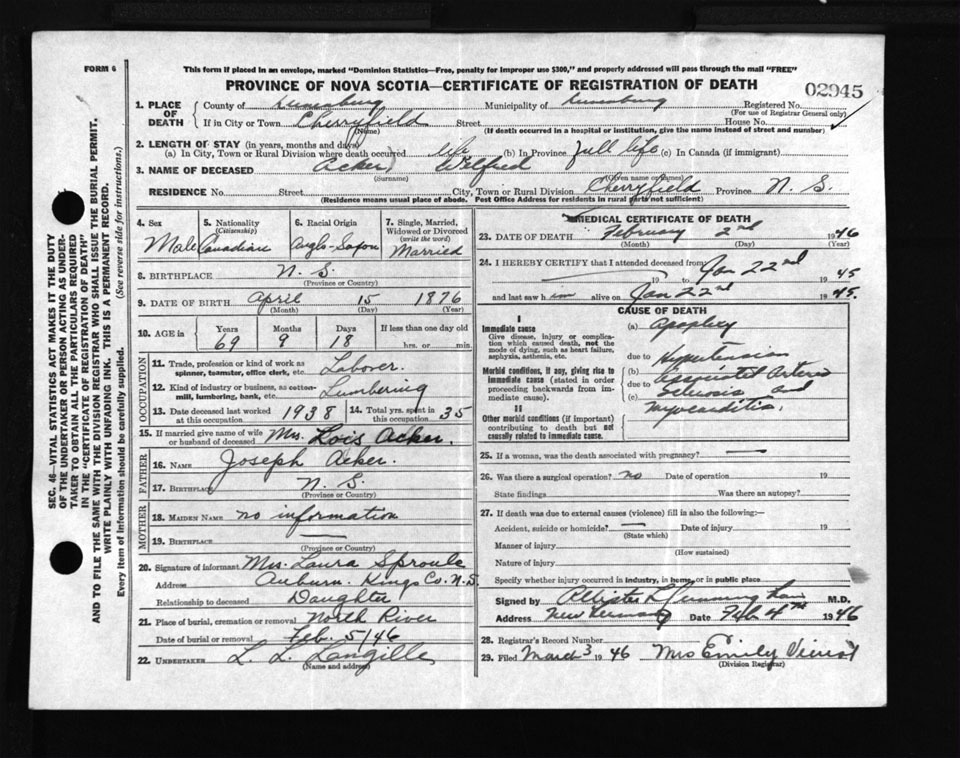 FORM 6
This form if placed in an envelope, marked "Dominion Statistics—Free, penalty for improper use $300," and properly addressed will pass through the mail "FREE"
PROVINCE OF NOVA SCOTIA—CERTIFICATE OF REGISTRATION OF DEATH
02945
1. PLACE OF DEATH
County of Lunenburg Municipality of Lunenburg Registered No.
(For use of Registrar General only)
If in City or Town Cherryfield Street House No.
(Name) (If death occurred in a hospital or institution, give the name instead of street and number)
2. LENGTH OF STAY (in years, months and days)
(a) In City, Town or Rural Division where death occurred life (b) In Province full life (c) In Canada (if immigrant)
3. NAME OF DECEASED Acker Wilfred
(Surname) (Given name or names)
RESIDENCE No. Street City, Town or Rural Division Cherryfield Province N. S.
(Residence means usual place of abode. Post Office Address for residents in rural parts not sufficient)
4. Sex
Male
5. Nationality (Citizenship)
Canadian
6. Racial Origin
Anglo-Saxon
7. Single, Married, Widowed or Divorced (write the word)
Married
8. BIRTHPLACE N. S.
(Province or Country)
9. DATE OF BIRTH April 15 1876
(Month) (Day) (Year)
10. AGE in Years Months Days If less than one day old
69 9 18 hrs. or min.
OCCUPATION
11. Trade, profession or kind of work as spinner, teamster, office clerk, etc. Laborer.
12. Kind of industry or business, as cotton-mill, lumbering, bank, etc. Lumbering
13. Date deceased last worked at this occupation 1938
14. Total yrs. spent in this occupation 35
15. If married give name of wife or husband of deceased Mrs. Lois Acker.
FATHER
16. NAME Joseph Acker.
17. BIRTHPLACE N. S.
(Province or Country)
MOTHER
18. MAIDEN NAME no information
19. BIRTHPLACE —
(Province or Country)
20. Signature of informant Mrs. Laura Sproule
Address Auburn. Kings Co. N.S.
Relationship to deceased Daughter
21. Place of burial, cremation or removal North River
Date of burial or removal Feb. 5/46
22. UNDERTAKER L. L. Langille
(Name and address)
MEDICAL CERTIFICATE OF DEATH
23. DATE OF DEATH February 2nd 1946
(Month) (Day) (Year)
24. I HEREBY CERTIFY that I attended deceased from Jan 22nd 1945
19 to
and last saw him alive on Jan 22nd 1945.
CAUSE OF DEATH
I
Immediate cause
Give disease, injury or complication which caused death, not the mode of dying, such as heart failure, asphyxia, asthenia, etc.
(a) Apoplexy
due to Hypertension
Morbid conditions, if any, giving rise to immediate cause (stated in order proceeding backwards from immediate cause).
(b) Associated Arterio
due to Sclerosis and
(c) Myocarditis.
II
Other morbid conditions (if important) contributing to death but not causally related to immediate cause.
25. If a woman, was the death associated with pregnancy? —
26. Was there a surgical operation? no Date of operation 19
State findings Was there an autopsy?
27. If death was due to external causes (violence) fill in also the following:—
Accident, suicide or homicide? — Date of injury — 19
(State which)
Manner of injury
(How sustained)
Nature of injury
Specify whether injury occurred in industry, in home, or in public place
Signed by Cunningham M.D.
Address New Germany Date Feb 4th 1946
28. Registrar's Record Number
29. Filed March 3 1946 Mrs Emily Veinot
(Division Registrar)
SEC. 46—VITAL STATISTICS ACT MAKES IT THE DUTY
OF THE UNDERTAKER OR PERSON ACTING AS UNDER-
TAKER TO OBTAIN ALL THE PARTICULARS REQUIRED
IN THE "CERTIFICATE OF REGISTRATION OF DEATH"
AND TO FILE THE SAME WITH THE DIVISION REGISTRAR WHO SHALL ISSUE THE BURIAL PERMIT.
WRITE PLAINLY WITH UNFADING INK. THIS IS A PERMANENT RECORD.
Every item of information should be carefully supplied. (See reverse side for instructions.)